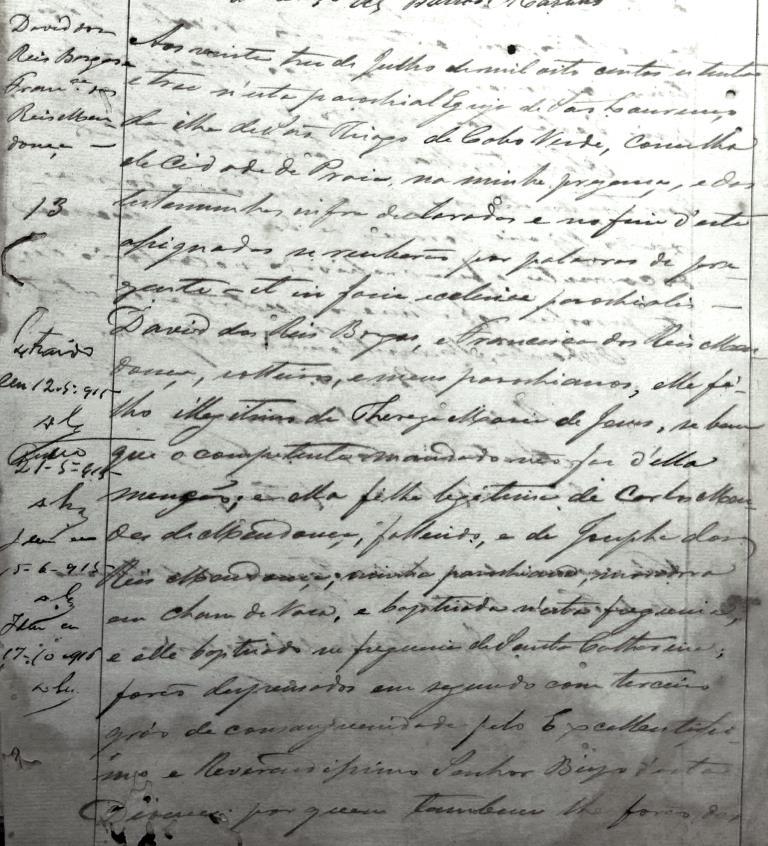 David dos
Reis Borges
Fran.ca dos
Reis Men
donça —
13
Aos vinte tres de Julho de mil oito centos setenta
e tres n'esta parochial Egreja de São Lourenço
da ilha de São Thiago de Cabo Verde, concelho
da Cidade da Praia, na minha presença, e das
testemunhas infra declaradas e no fim d'este
assignadas se receberão por palavras de pre-
zente — et in facie ecclesiae parochialis —
David dos Reis Borges, e Francisca dos Reis Men
donça, solteiros, e meus parochianos, elle fi-
lho illegitimo de Thereza Maria de Jesus, se bem
que o competente mandado não faz d'ella
menção; e ella filha legitima de Carlos Men-
des de Mendonça, fallecido, e de Josepha dos
Reis Mendonça, minha parochiana, moradora
em Cham de Vaca, e baptisada n'esta freguesia,
e elle baptisado na freguesia de Santa Catharina;
forão dispensados em segundo com terceiro
gráo de consanguinidade pelo Excellentissi-
mo e Reverendissimo Senhor Bispo d'esta
Diocese, por quem tambem lhe forão, das
Extraido
em 12-5-915
21-5-915
Idem em
15-6-915
Idem em
17-10-916